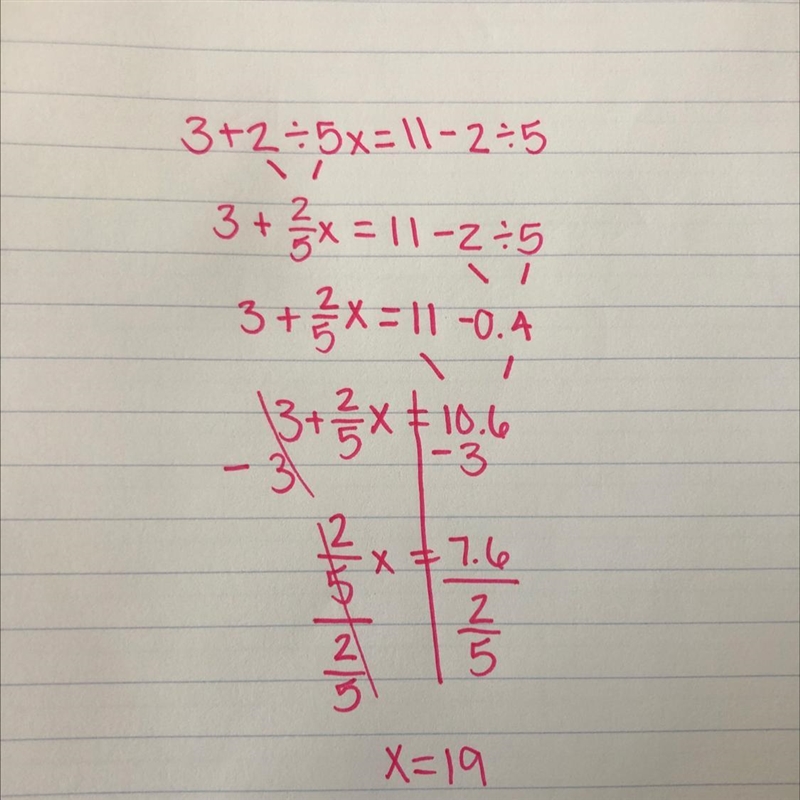 3+2÷5x=11-2÷5
3 + 2/5 x = 11 - 2÷5
3 + 2/5 x = 11 -0.4
3 + 2/5 x = 10.6
- 3 -3
2/5 x = 7.6
2/5 2/5
x=19